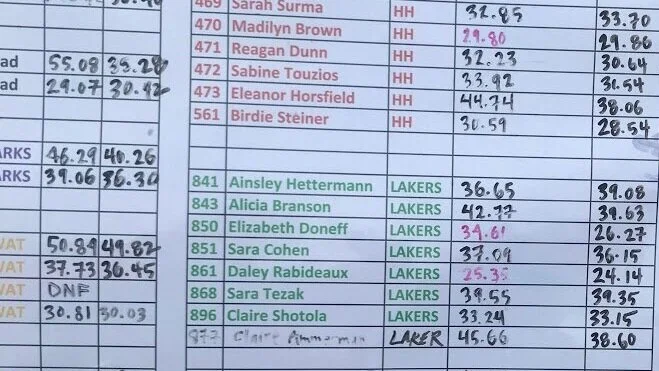 469 Sarah Surma HH 32.85 33.70
470 Madilyn Brown HH 29.80 29.86
471 Reagan Dunn HH 32.23 30.64
ad 55.08 35.28 472 Sabine Touzios HH 33.92 31.54
ad 29.07 30.42 473 Eleanor Horsfield HH 44.74 38.06
561 Birdie Steiner HH 30.59 28.54
ARKS 46.29 40.26
ARKS 39.06 36.30 841 Ainsley Hettermann LAKERS 36.65 39.08
843 Alicia Branson LAKERS 42.77 39.63
850 Elizabeth Doneff LAKERS 34.61 26.27
VAT 50.84 49.82 851 Sara Cohen LAKERS 37.09 36.15
VAT 37.73 36.45 861 Daley Rabideaux LAKERS 25.35 24.14
VAT DNF 868 Sara Tezak LAKERS 39.55 39.35
VAT 30.81 30.03 896 Claire Shotola LAKERS 33.24 33.15
Claire Ammerman LAKER 45.66 38.60